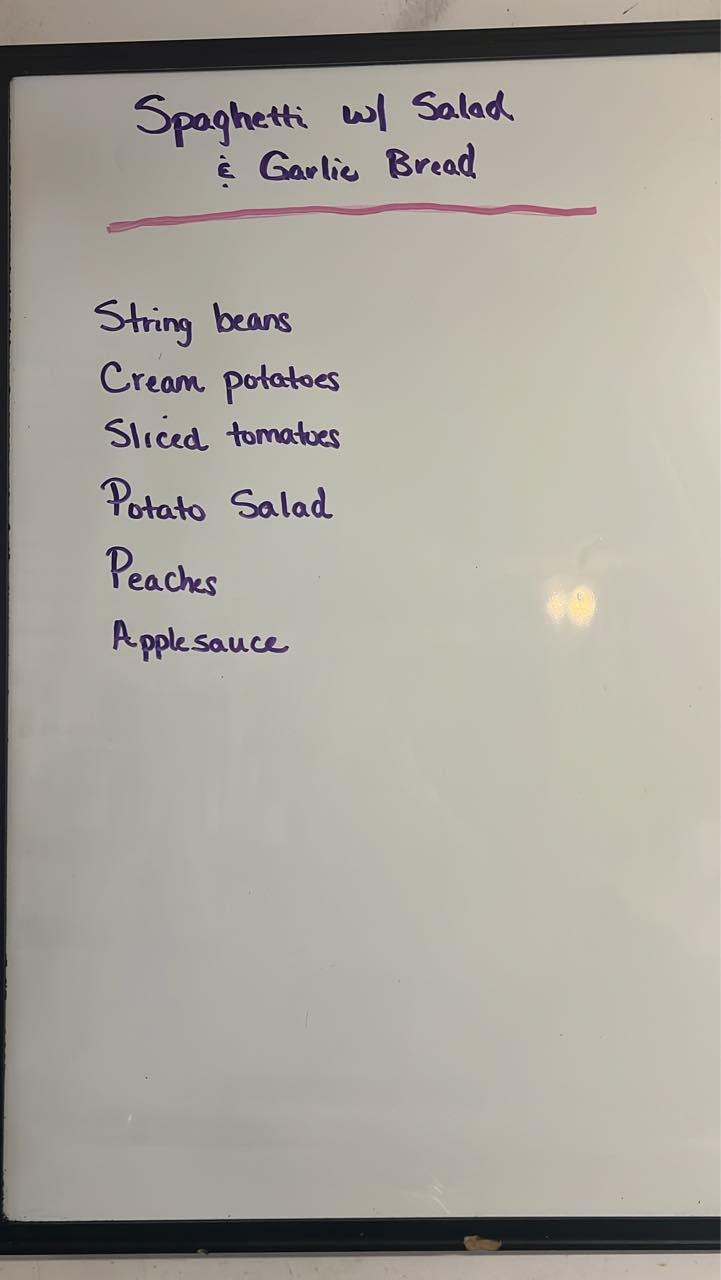 Spaghetti w/ Salad
& Garlic Bread
String beans
Cream potatoes
Sliced tomatoes
Potato Salad
Peaches
Applesauce